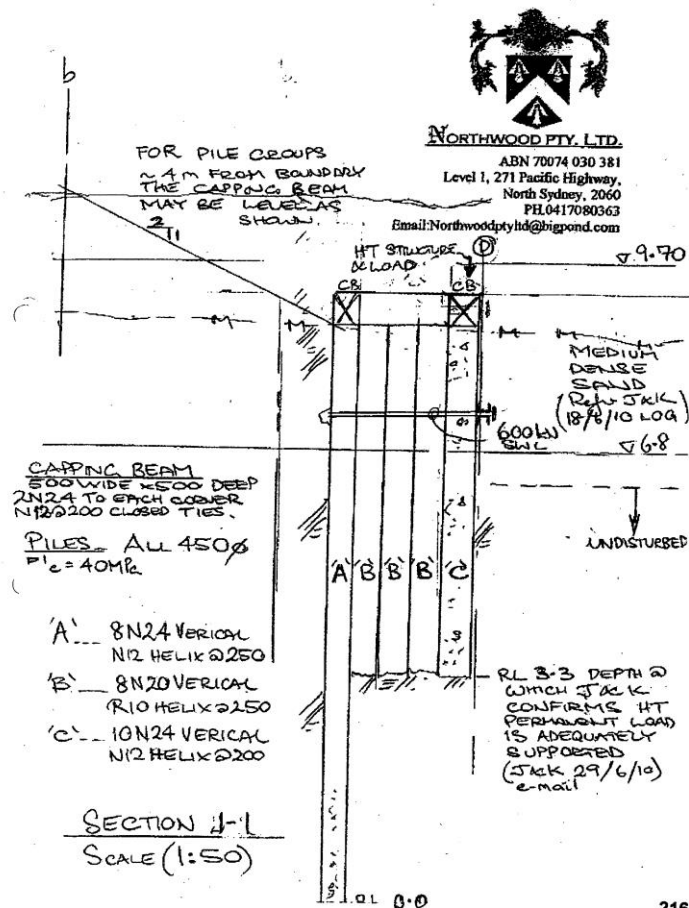 NORTHWOOD PTY. LTD.
ABN 70074 030 381
Level 1, 271 Pacific Highway,
North Sydney, 2060
PH.0417080363
Email:Northwoodptyltd@bigpond.com
b
FOR PILE GROUPS
~4m FROM BOUNDARY
THE CAPPING BEAM
MAY BE
SHOWN.
2
1
HT STRUCTURE
& LOAD
D
9.70
CB
CB
M
M
M
M
MEDIUM
DENSE
SAND
(Refer JACK
18/6/10 LOG)
600kN
SWL
6.8
UNDISTURBED
CAPPING BEAM
500 WIDE x 500 DEEP
2N24 TO EACH CORNER
N12@200 CLOSED TIES.
PILES - ALL 450ø
F'c = 40MPa
'A' 'B' 'B' 'B' 'C'
'A' -- 8N24 VERICAL
N12 HELIX @250
'B' -- 8N20 VERICAL
R10 HELIX @250
'C' -- 10N24 VERICAL
N12 HELIX @200
RL 3.3 DEPTH @
WHICH JACK
CONFIRMS HT
PERMANENT LOAD
IS ADEQUATELY
SUPPORTED
(JACK 29/6/10)
e-mail
SECTION
SCALE (1:50)
RL 0.0
316